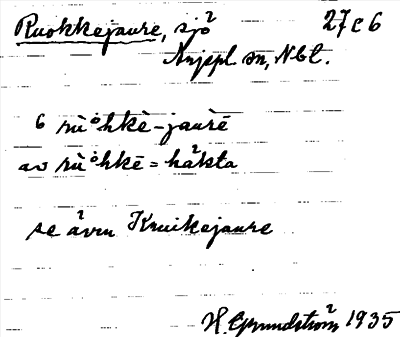 Ruokkejaure, sjö 27c6
Arjepl. sn, Nbt.
6 rùo̊hkē-jaurē
av rùo̊hkē = häkta
se även Kruikejaure
H. Grundström 1935